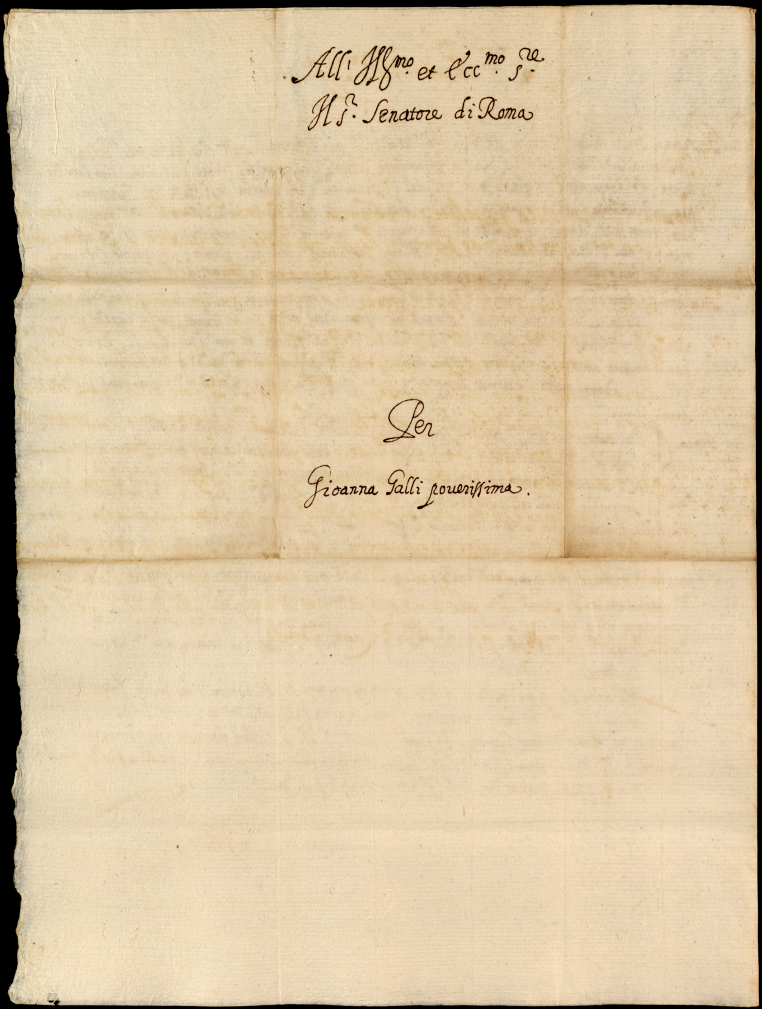 All' Ill.mo et Ecc.mo S.re
Il S.r Senatore di Roma
Per
Gioanna Galli pouerissima.